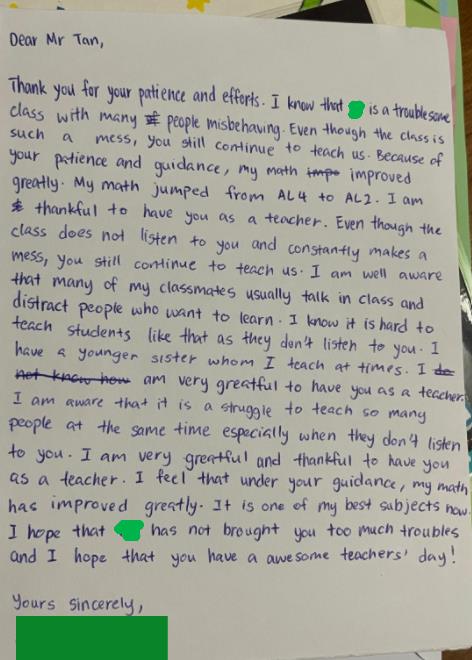 Dear Mr Tan,
Thank you for your patience and efforts. I know that is a troublesome
class with many people misbehaving. Even though the class is
such a mess, you still continue to teach us. Because of
your patience and guidance, my math impo improved
greatly. My math jumped from AL4 to AL2. I am
thankful to have you as a teacher. Even though the
class does not listen to you and constantly makes a
mess, you still continue to teach us. I am well aware
that many of my classmates usually talk in class and
distract people who want to learn. I know it is hard to
teach students like that as they don't listen to you. I
have a younger sister whom I teach at times. I do
not know how am very greatful to have you as a teacher.
I am aware that it is a struggle to teach so many
people at the same time especially when they don't listen
to you. I am very greatful and thankful to have you
as a teacher. I feel that under your guidance, my math
has improved greatly. It is one of my best subjects now.
I hope that has not brought you too much troubles
and I hope that you have a awesome teachers' day!
Yours sincerely,